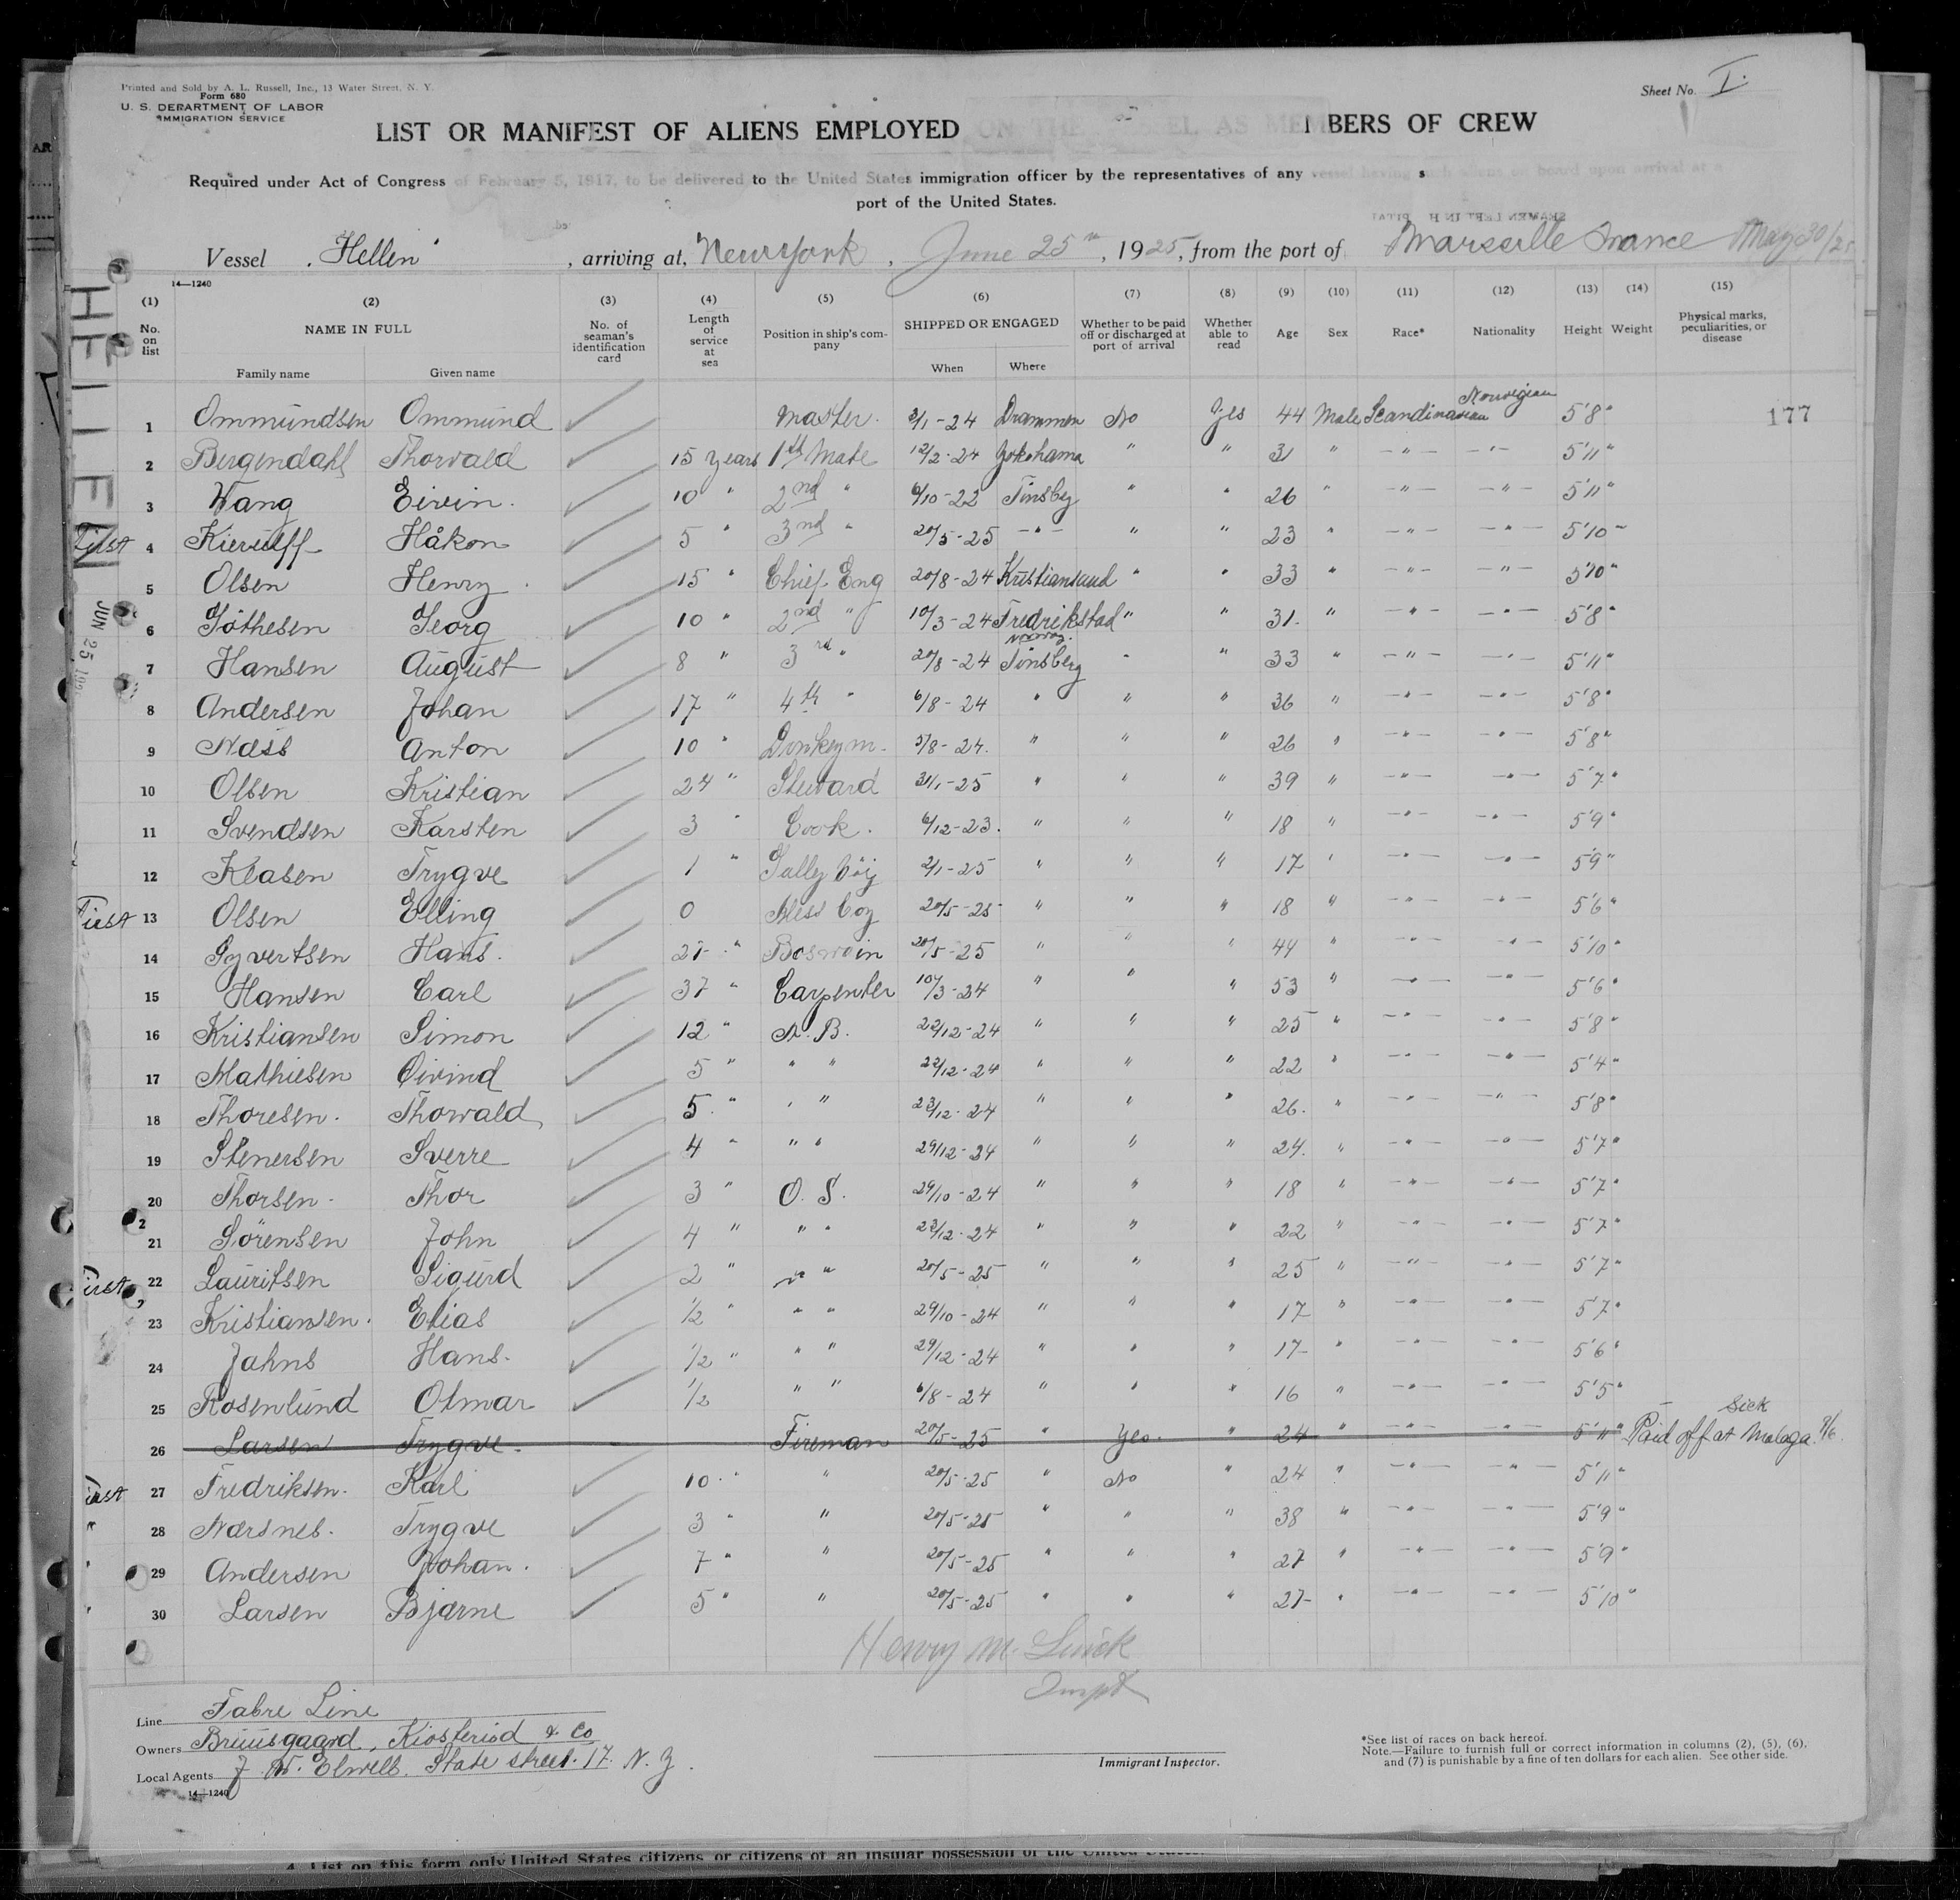 Printed and Sold by A. L. Russell, Inc., 13 Water Street, N. Y.
Form 680
U. S. DEPARTMENT OF LABOR
IMMIGRATION SERVICE
Sheet No. I.
LIST OR MANIFEST OF ALIENS EMPLOYED ON THE VESSEL AS MEMBERS OF CREW
Required under Act of Congress of February 5, 1917, to be delivered to the United States immigration officer by the representatives of any vessel having such aliens on board upon arrival at a
port of the United States.
Vessel Hellen, arriving at, New York, June 25th, 1925, from the port of Marseille France May 30/25
14—1240
HELLEN
JUN 25
(1) (2) (3) (4) (5) (6) (7) (8) (9) (10) (11) (12) (13) (14) (15)
No. on list NAME IN FULL Family name Given name No. of seaman's identification card Length of service at sea Position in ship's company SHIPPED OR ENGAGED When Where Whether to be paid off or discharged at port of arrival Whether able to read Age Sex Race* Nationality Height Weight Physical marks, peculiarities, or disease
1 Ommundsen Ommund Master. 3/1-24 Drammen No Yes 44 Male Scandinavian Norwegian 5'8" 177
2 Bergendahl Thorvald 15 years 1th Mate 12/2-24 Yokohama " " 31 " -"- -"- 5'11"
3 Wang Eivin. 10 " 2nd " 6/10-22 Tinsbg " " 26 " -"- -"- 5'11"
First 4 Kierulff Håkon 5 " 3nd " 20/5-25 -"- " " 23 " -"- -"- 5'10"
5 Olsen Henry 15 " Chief Eng 20/8-24 Kristiansund " " 33 " -"- -"- 5'10"
6 Göthesen Georg 10 " 2nd " 10/3-24 Fredrikstad " " 31. " -"- -"- 5'8"
7 Hansen August 8 " 3rd " 20/8-24 Norway. Tönsberg " " 33 " -"- -"- 5'11"
8 Andersen Johan 17 " 4th " 6/8-24 " " " 36 " -"- -"- 5'8"
9 Næss Anton 10 " Donkeym. 5/8-24. " " " 26 " -"- -"- 5'8"
10 Olsen Kristian 24 " Steward 31/1-25 " " " 39 " -"- -"- 5'7"
11 Svendsen Karsten 3 " Cook. 6/12-23. " " " 18 " -"- -"- 5'9"
12 Klasen Trygve 1 " Gally boy 2/1-25 " " " 17 " -"- -"- 5'9"
First 13 Olsen Elling 0 Mess boy 20/5-25 " " " 18 " -"- -"- 5'6"
14 Syvertsen Hans. 27 " Boswain 20/5-25 " " " 44 " -"- -"- 5'10"
15 Hansen Carl 37 " Carpenter 10/3-24 " " " 53 " -"- -"- 5'6"
16 Kristiansen Simon 12 " A. B. 22/12-24 " " " 25 " -"- -"- 5'8"
17 Mathiesen Öivind 5 " " " 22/12-24 " " " 22 " -"- -"- 5'4"
18 Thoresen. Thorvald 5 " " " 23/12-24 " " " 26. " -"- -"- 5'8"
19 Stenersen Sverre 4 " " " 29/12-24 " " " 24. " -"- -"- 5'7"
20 Thorsen. Thor 3 " O. S. 29/10-24 " " " 18 " -"- -"- 5'7"
21 Sörensen John 4 " " " 23/12-24 " " " 22 " -"- -"- 5'7"
First 22 Lauritsen Sigurd 2 " " " 20/5-25 " " " 25 " -"- -"- 5'7"
23 Kristiansen. Elias 1/2 " " " 29/10-24 " " " 17 " -"- -"- 5'7"
24 Jahns Hans. 1/2 " " " 29/12-24 " " " 17 " -"- -"- 5'6"
25 Rosenlund Otmar 1/2 " " 6/8-24 " " " 16 " -"- -"- 5'5"
26 Larsen Trygve. Fireman 20/5-25 " Yes. " 24 " -"- -"- 5'11" Sick Paid off at Malaga
First 27 Fredriksen. Karl 10 " " 20/5-25 " No " 24 " -"- -"- 5'11"
" 28 Nærsnes. Trygve 3 " " 20/5-25 " " " 38 " -"- -"- 5'9"
" 29 Andersen Johan. 7 " " 20/5-25 " " " 27 " -"- -"- 5'9"
" 30 Larsen Bjarne 5 " " 20/5-25 " " " 27 " -"- -"- 5'10"
Henry M.
Line Fabre Line
Owners Bruusgaard, Kiosteriod & Co
Local Agents J. W. Elwell. State street. 17. N. Y.
14—1240
Immigrant Inspector.
*See list of races on back hereof.
Note.—Failure to furnish full or correct information in columns (2), (5), (6),
and (7) is punishable by a fine of ten dollars for each alien. See other side.
4. List on this form only United States citizens or citizens of an insular possession of the United States.